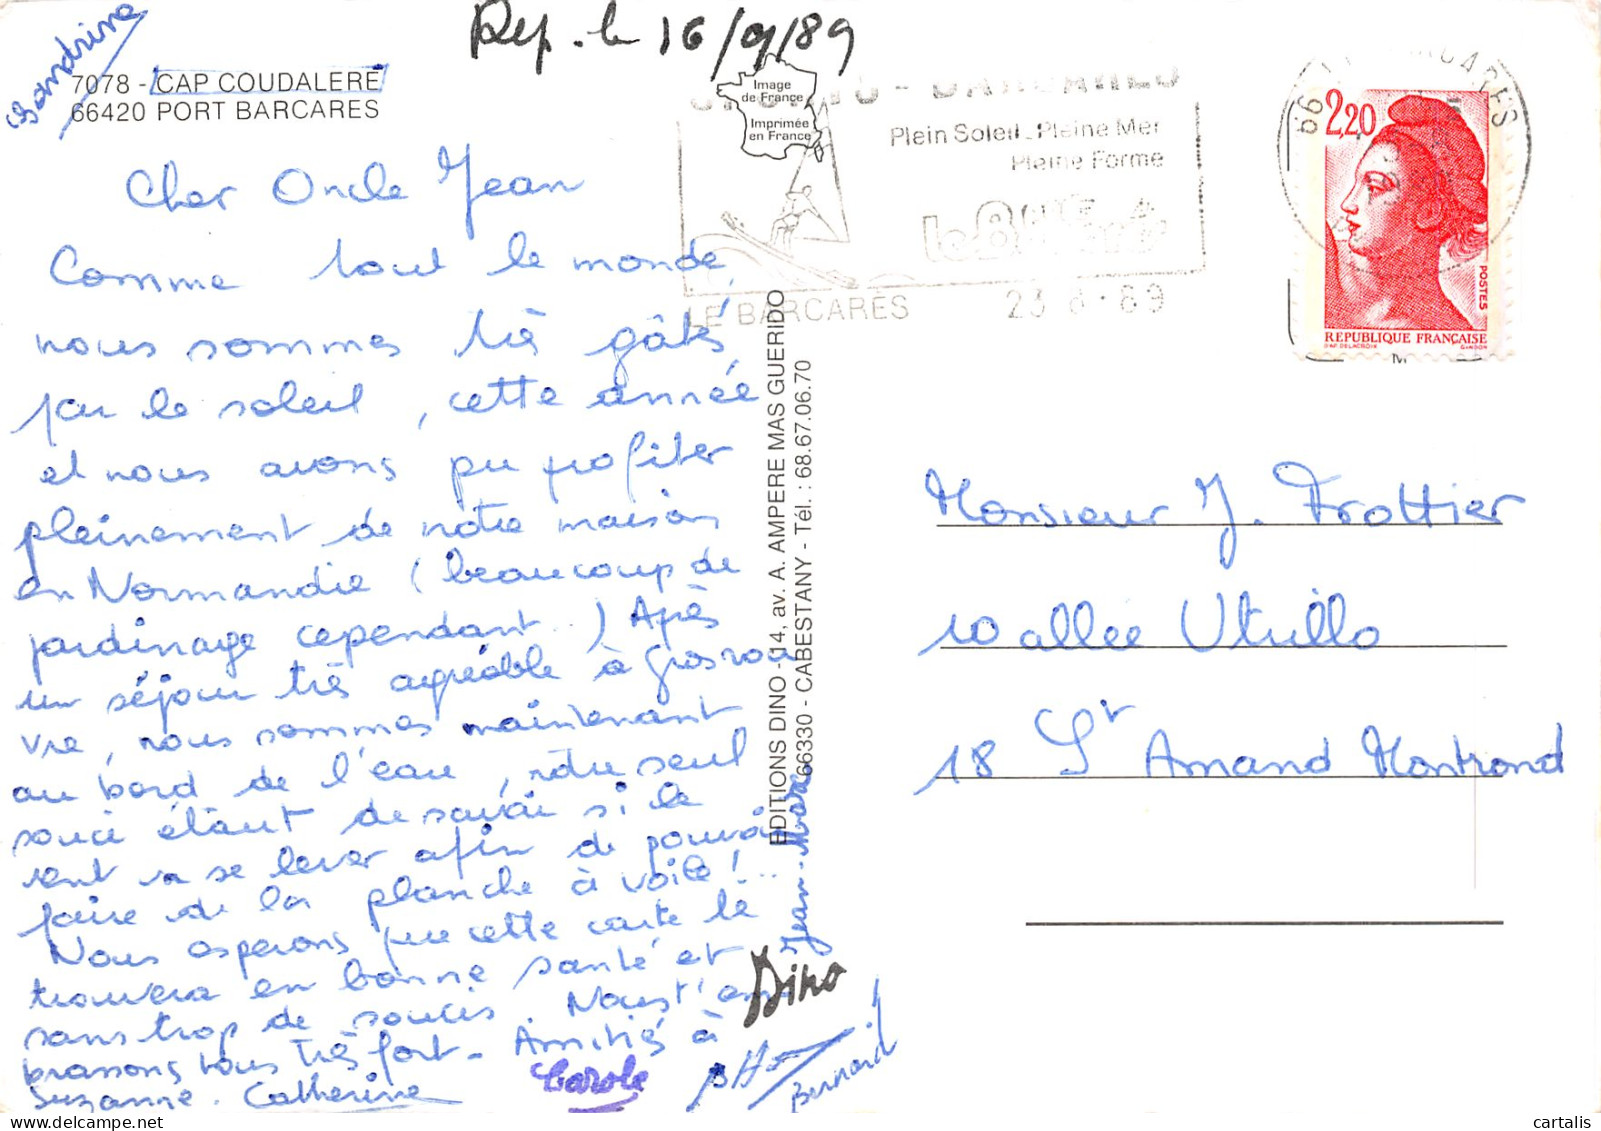 Rep. le 16/9/89
Sandrine
7078 - CAP COUDALERE
66420 PORT BARCARES
Image
de France
Imprimée
en France
Plein Soleil _ Pleine Mer
Pleine Forme
LE BARCARÈS
23 8 - 89
2,20
POSTES
REPUBLIQUE FRANÇAISE
Cher Oncle Jean
Comme tout le monde,
nous sommes très gâtés,
par le soleil, cette année
et nous avons pu profiter
pleinement de notre maison
en Normandie (beaucoup de
jardinage cependant.) Après
un séjour très agréable à Grosrou
vre, nous sommes maintenant
au bord de l'eau, notre seul
souci étant de savoir si le
vent va se lever afin de pouvoir
faire de la planche à voile!...
Nous esperons que cette carte te
trouvera en bonne santé et
sans trop de soucis. Nous t'em
brassons tous très fort - Amitiés à
Suzanne. Catherine
Carole
Bernard
Jean-Marc
Dino
EDITIONS DINO - 14, av. A. AMPERE MAS GUERIDO
66330 - CABESTANY - Tél. : 68.67.06.70
Monsieur J. Trottier
10 allée Utrillo
18 St Amand Montrond
cartalis